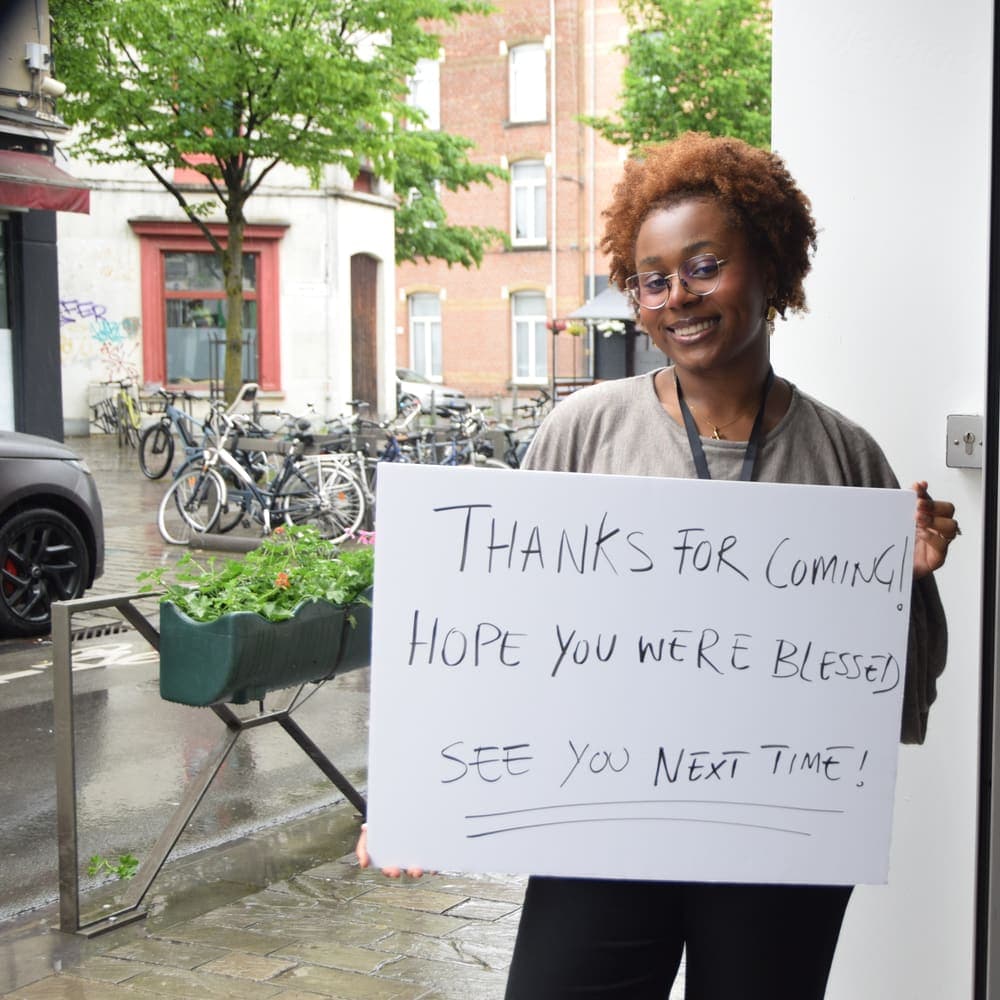 THANKS FOR COMING!
HOPE YOU WERE BLESSED
SEE YOU NEXT TIME!